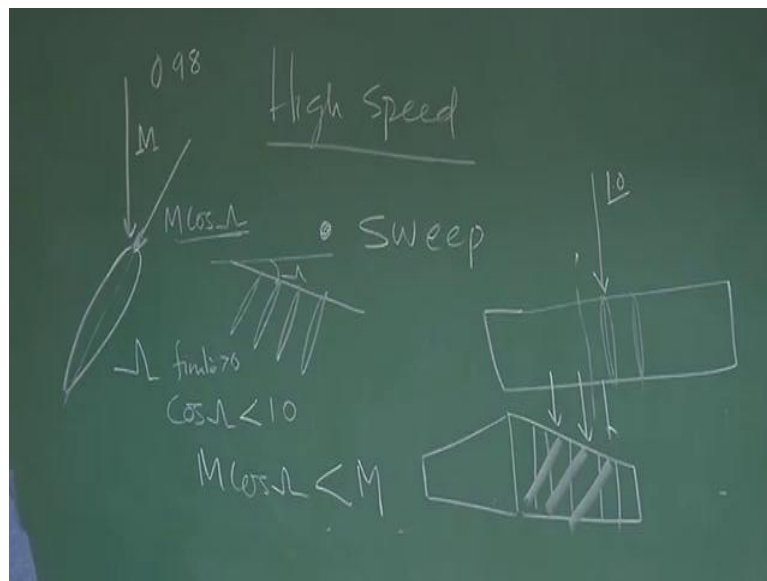 0.98
High Speed
M
1.0
McosΛ
• Sweep
Λ
Λ finite > 0
CosΛ < 1.0
McosΛ < M